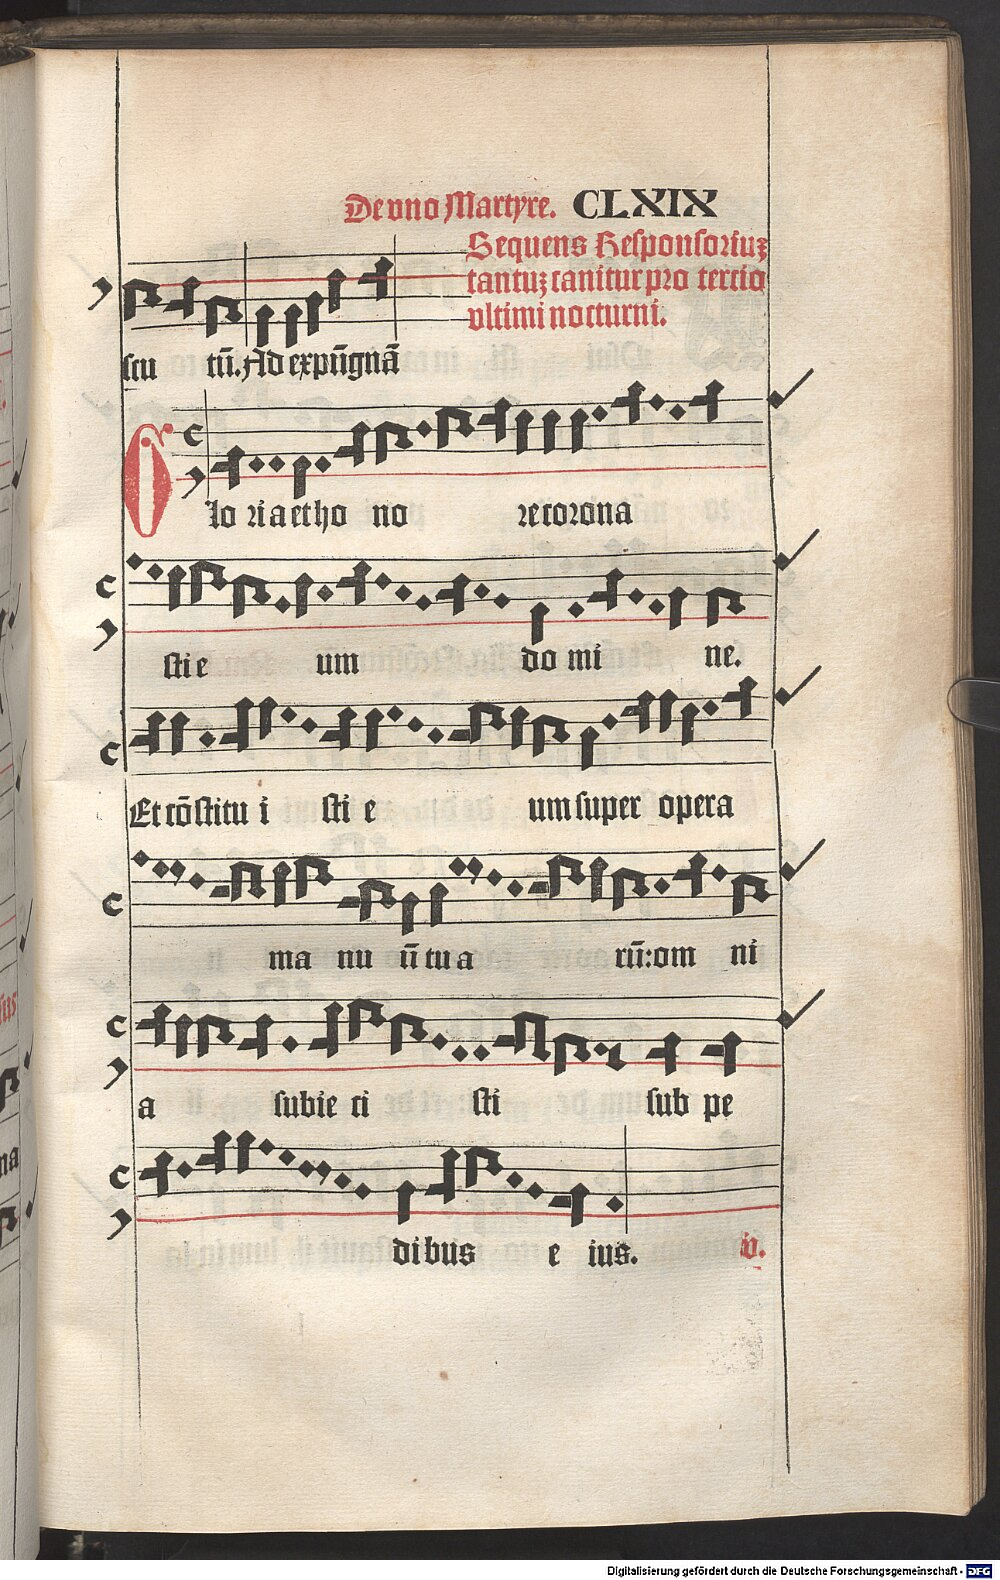 De vno Martyre. CLXIX
Sequens Responsoriuʒ
tantuʒ canitur pro tercio
vltimi nocturni.
scu tū. Ad expūgnā
Glo ria et ho no re corona
sti e um do mi ne.
Et cōstitu i sti e um super opera
ma nu ū tu a rū: om ni
a subie ci sti sub pe
di bus e ius. v.
Digitalisierung gefördert durch die Deutsche Forschungsgemeinschaft - DFG